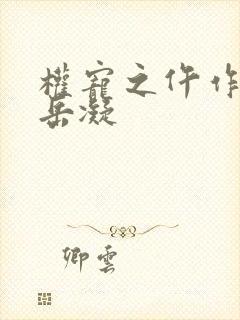 權寵之仵作
岳凝
卿雲